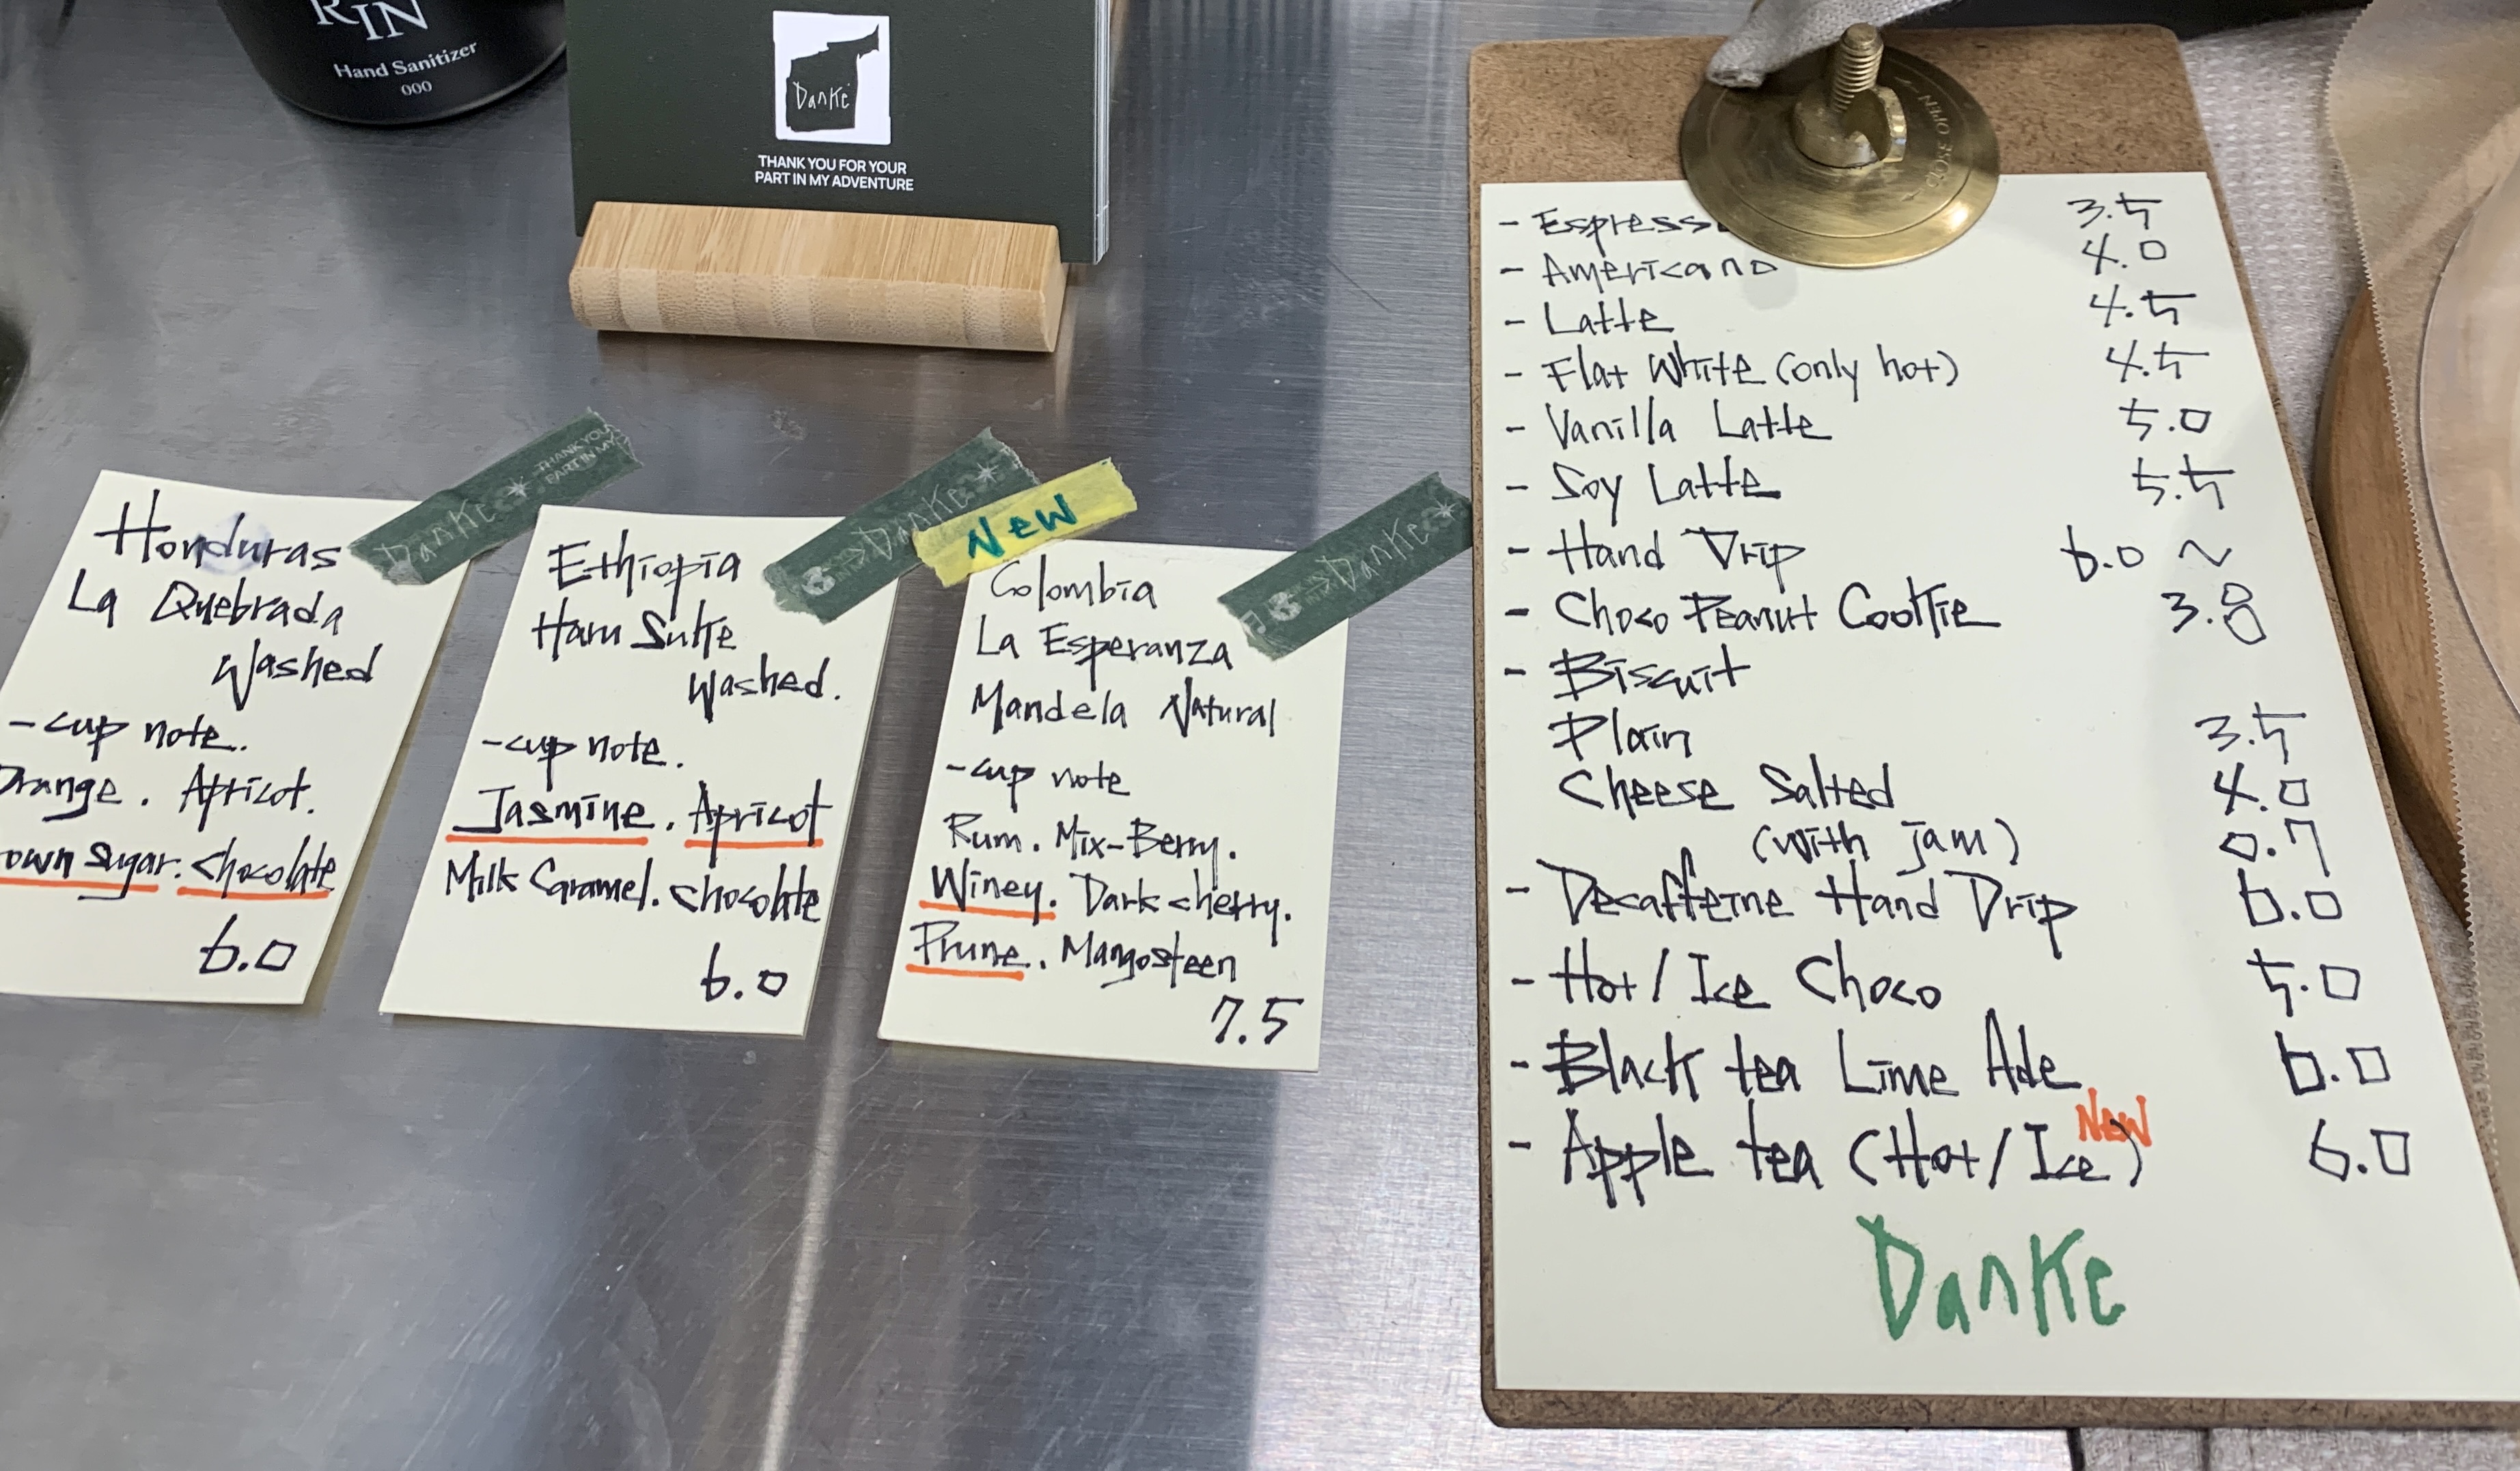 RIN
Hand Sanitizer
000
Danke
THANK YOU FOR YOUR
PART IN MY ADVENTURE
Danke THANK YOU
PART IN MY
Honduras
La Quebrada
Washed
- cup note.
Orange. Apricot.
own sugar. chocolate
6.0
Danke
Ethiopia
Haru Suke
Washed.
- cup note.
Jasmine. Apricot
Milk Caramel. chocolate
6.0
New
Danke
Colombia
La Esperanza
Mandela Natural
- cup note
Rum. Mix-Berry.
Winey. Dark cherry.
Prune. Mangosteen
7.5
CLOSE OPEN
- Espresso 3.5
- Americano 4.0
- Latte 4.5
- Flat White (only hot) 4.5
- Vanilla Latte 5.0
- Soy Latte 5.5
- Hand Drip 6.0 ~
- Choco Peanut Cookie 3.8
- Biscuit
Plain 3.5
Cheese Salted 4.0
(with jam) 0.7
- Decaffeine Hand Drip 6.0
- Hot / Ice Choco 5.0
- Black tea Lime Ade 6.0
- Apple tea (Hot / Ice) New 6.0
Danke